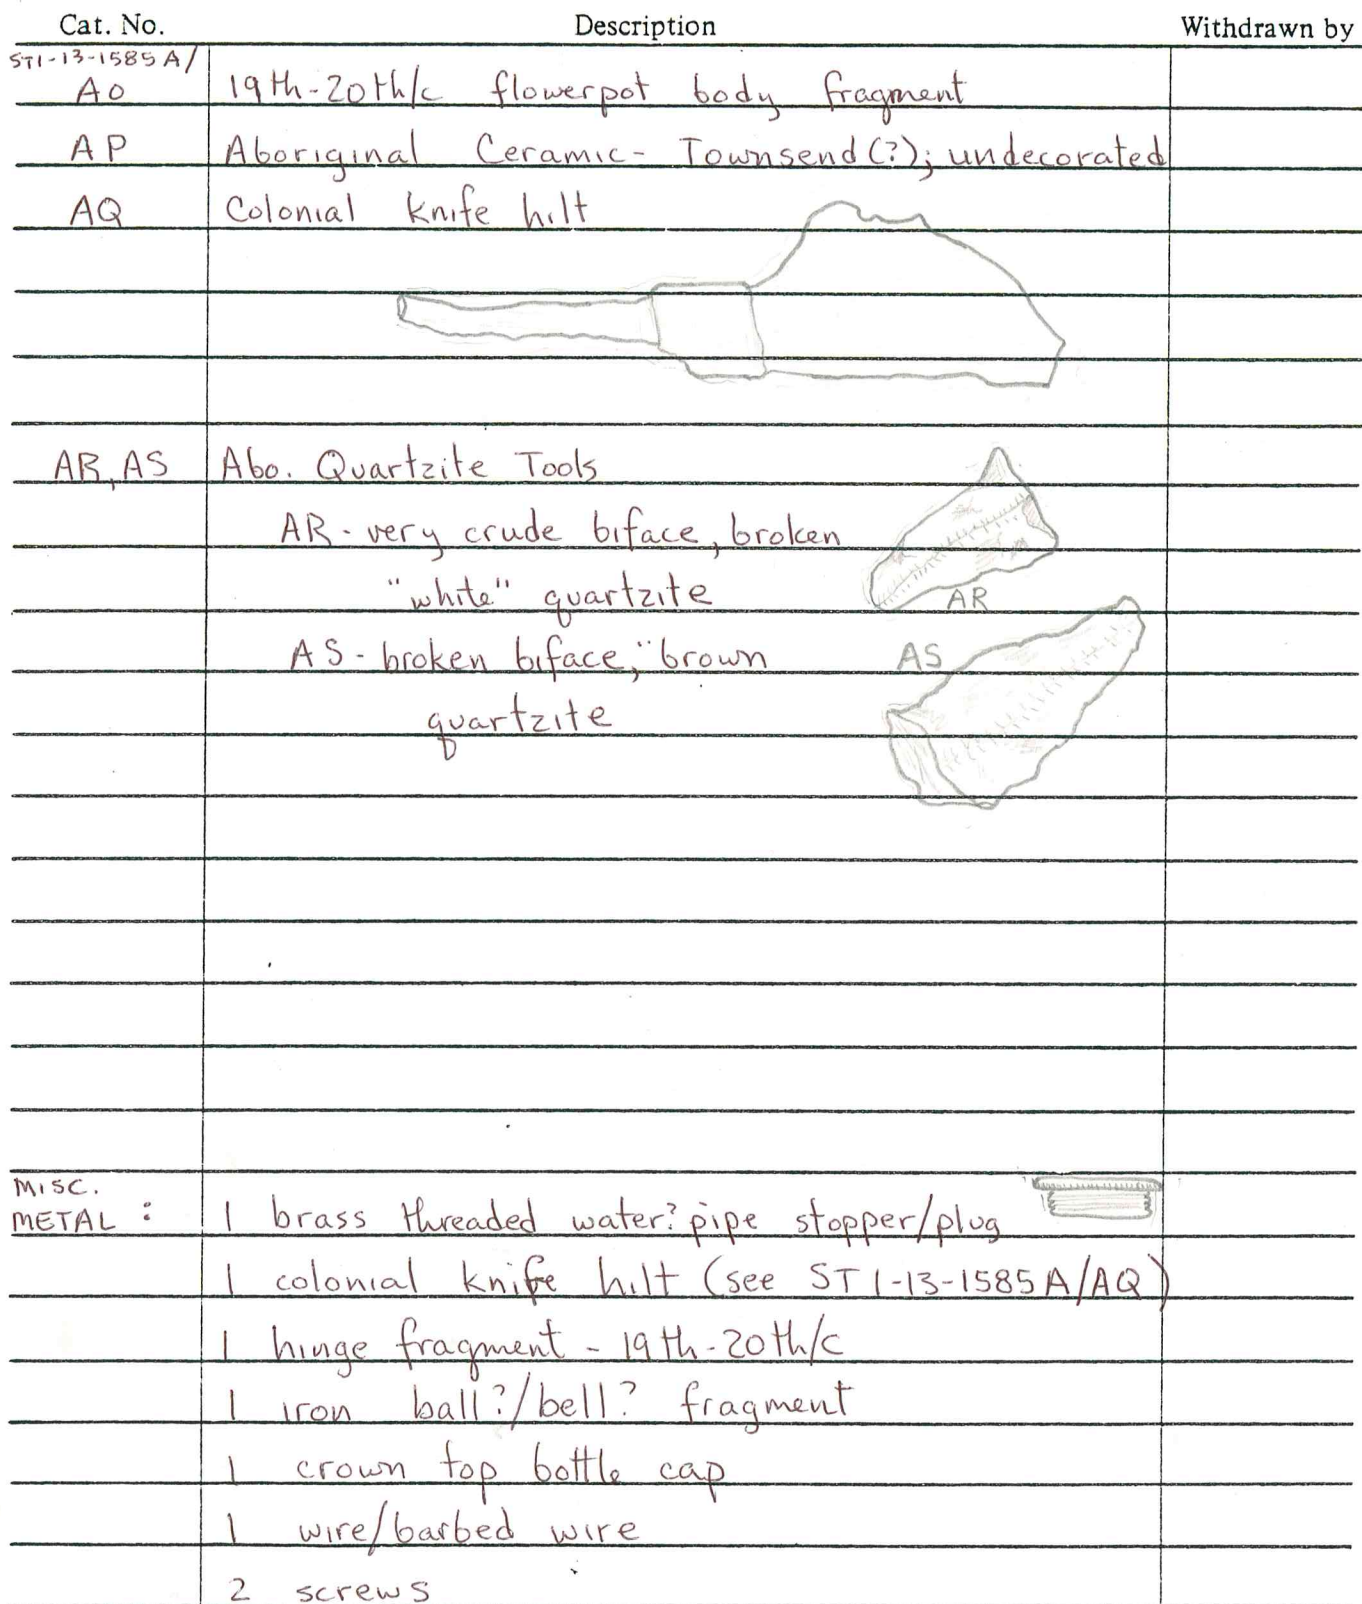 Cat. No. Description Withdrawn by
ST1-13-1585A/
AO 19th-20th/c flowerpot body fragment
AP Aboriginal Ceramic- Townsend(?); undecorated
AQ Colonial knife hilt
AR, AS Abo. Quartzite Tools
AR - very crude biface, broken
"white" quartzite
AR
AS - broken biface, "brown
AS
quartzite
MISC.
METAL : 1 brass threaded water? pipe stopper/plug
1 colonial knife hilt (see ST1-13-1585A/AQ)
1 hinge fragment - 19th-20th/c
1 iron ball?/bell? fragment
1 crown top bottle cap
1 wire/barbed wire
2 screws